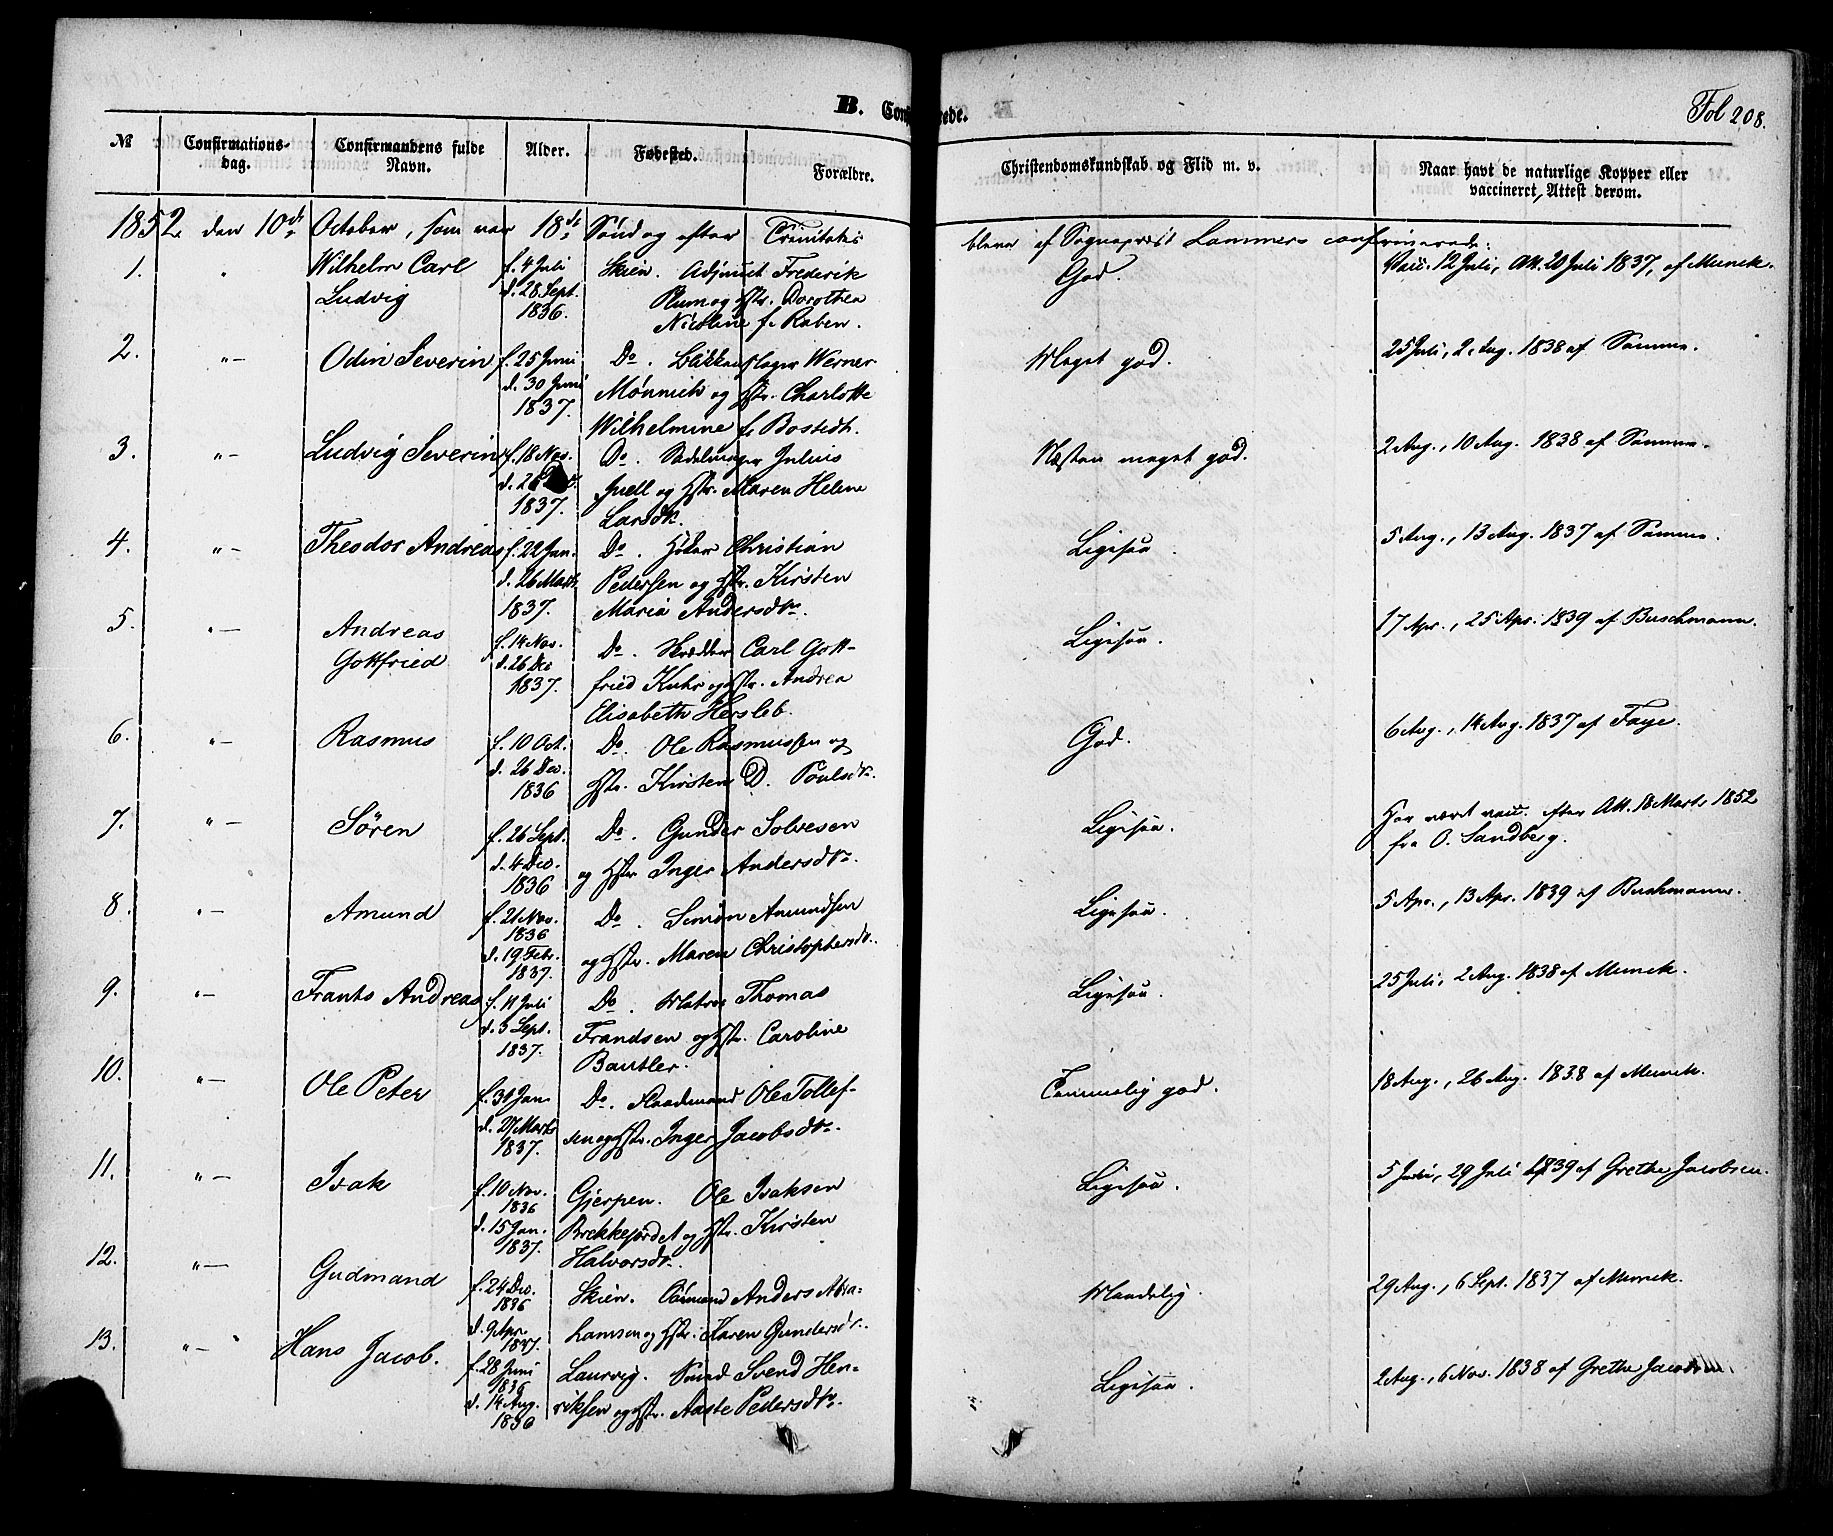 B. Conf rede.
Fol 208.
№ Confirmations-dag. Confirmandens fulde Navn. Alder. Fødested. Forældre. Christendomskundskab og Flid m. v. Naar havt de naturlige Kopper eller vaccineret, Attest derom.
1852 den 10de October, som var 18de Søndag efter Trinitatis bleve af Sognepræst Lammers confirmerede:
1. " Wilhelm Carl f. 4 Juli Skien. Adjunct Frederik God. Vacc. 12 Juli, Att. 20 Juli 1837, af Munck.
Ludvig d. 28 Sept. Plum og Hstr. Dorothea
1836. Nicoline f. Raben.
2. "– Odin Severin f. 25 Juni Do. Blikkenslager Werner Meget god. 25 Juli, 2 Aug. 1838 af Samme.
d. 30 Juni Mønnich og Hstr. Charlotte
1837. Wilhelmine f. Bostedt.
3. "– Ludvig Severin f. 18 Nov. Do. Sadelmager Julius Næsten meget god. 2 Aug., 10 Aug. 1838 af Samme.
d. 26 Juell og Hstr. Maren Helene
1837. Larsdtr.
4. "– Theodor Andreas f. 22 Jan. Do. Høker Christian Ligesaa. 5 Aug., 13 Aug. 1837 af Samme.
d. 26 Marts Pedersen og Hstr. Kirsten
1837. Maria Andersdtr.
5. "– Andreas f. 14 Nov. Do. Skrædder Carl Gott- Ligesaa. 17 Apr., 25 Apr. 1839 af Buschmann.
Gottfried d. 26 Dec fried Kuhr og Hstr. Andrea
1837. Elisabeth Hersleb.
6. "– Rasmus f. 10 Oct. Do. Ole Rasmussen og God. 6 Aug., 14 Aug. 1837 af Faye.
d. 26 Dec. Hstr. Kirsten D. Poulsdtr.
1836
7. "– Søren f. 26 Sept. Do. Gunder Solvesen Ligesaa. Har været vacc. efter Att. 18 Marts 1852
d. 4 Dec. og Hstr Inger Andersdtr. fra O. Sandberg.
1836
8. "– Amund f. 21 Nov. Do. Simon Amundsen Ligesaa. 5 Apr., 13 Apr. 1839 af Buschmann.
1836
d. 19 Febr. og Hstr. Maren Christophersdtr.
1837.
9. "– Frants Andreas f. 11 Juli Do. Matros Thomas Ligesaa. 25 Juli, 2 Aug. 1838 af Munck.
d. 3 Sept. Frandsen og Hstr. Caroline
1837. Bautler.
10. "– Ole Peter f. 31 Jan. Do. Ole Tollef- Temmelig god. 18 Aug., 26 Aug. 1838 af Munck.
d. 27 Marts sen og Hstr. Inger Jacobsdtr.
1837.
11. "– Isak f. 10 Nov. Gjerpen. Ole Isaksen Ligesaa. 5 Juli, 29 Juli 1839 af Grethe Jacobsen.
1836
d. 15 Jan. Brekkejordet og Hstr. Kirsten
1837. Halvorsdtr.
12. "– Gudmand f. 24 Dec. Skien. Anders Abra- Maadelig. 29 Aug., 6 Sept. 1837 af Munck.
1836
d. 9 Apr. hamsen og Hstr. Karen Gundersdtr.
1837.
13. "– Hans Jacob. f. 28 Juni Laurvig. Smed Svend Hen- Ligesaa. 2 Aug., 6 Nov. 1838 af Grethe
1836
d. 14 Aug. riksen og Hstr. Aaste Pedersdtr.
1836